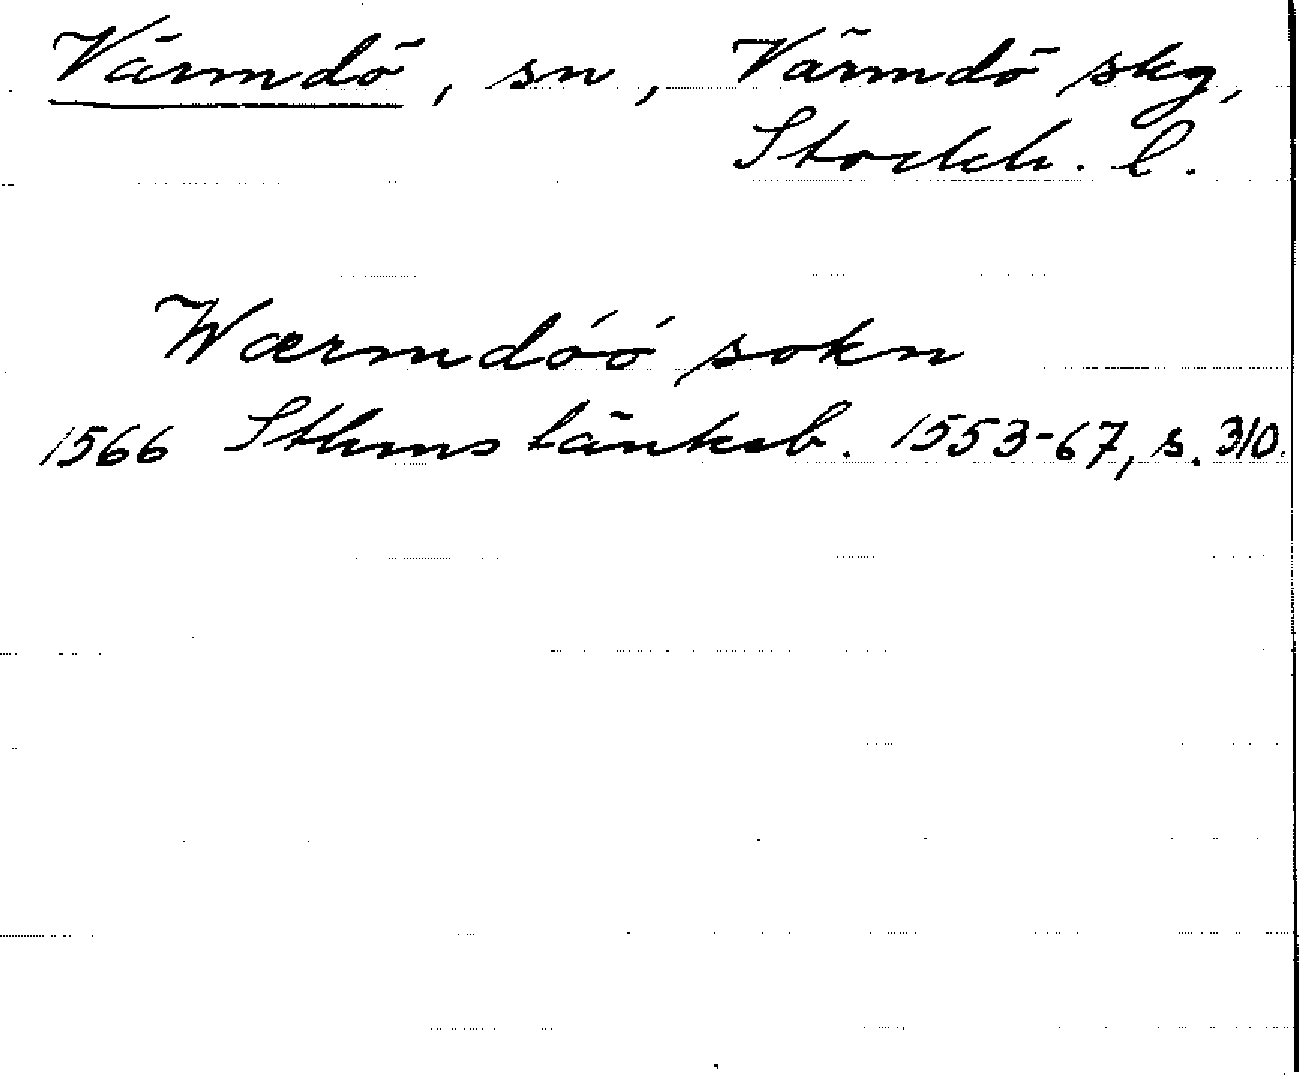 Värmdö, sn, Värmdö skg,
Stockh. l.
Wærmdóó sokn
1566 Sthms tänkeb. 1553-67, s. 310.